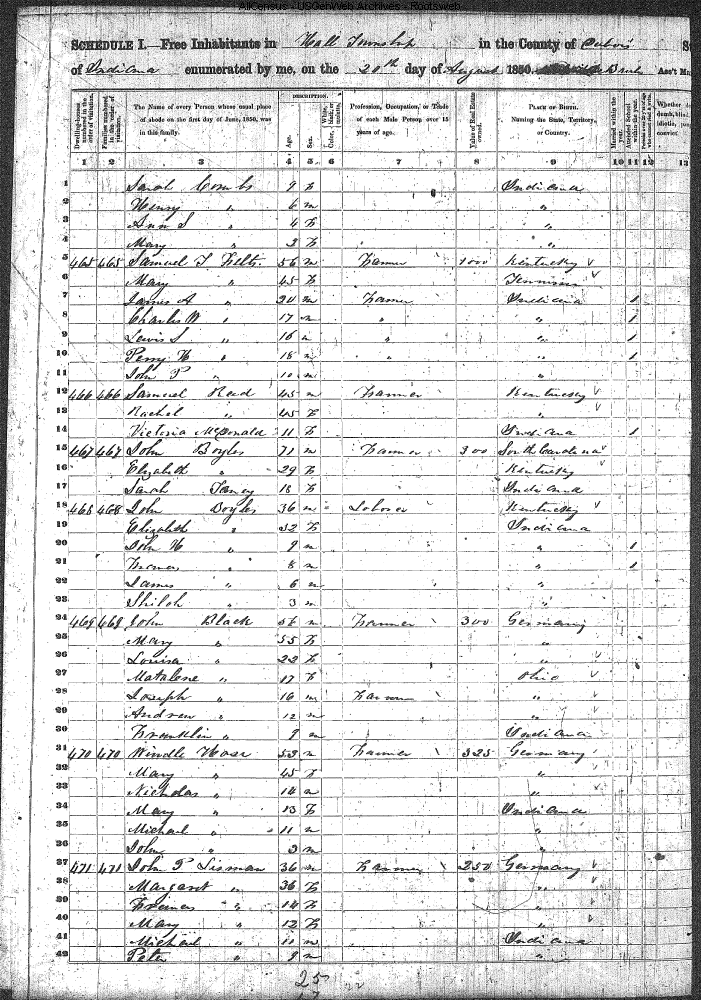 AllCensus - USGenWeb Archives - Rootsweb
SCHEDULE I.—Free Inhabitants in Hall Township in the County of Dubois S
of Indiana enumerated by me, on the 20th day of August 1850. Ass't Ma
Dwelling-houses numbered in the order of visitation.
Families numbered in the order of visitation.
The Name of every Person whose usual place of abode on the first day of June, 1850, was in this family.
DESCRIPTION.
Age.
Sex.
Color, White, black, or mulatto.
Profession, Occupation, or Trade of each Male Person over 15 years of age.
Value of Real Estate owned.
PLACE OF BIRTH. Naming the State, Territory, or Country.
Married within the year.
Attended School within the year.
Whether
1 2 3 4 5 6 7 8 9 10 11 12 13
1 Sarah Combs 9 F Indiana
2 Henry " 6 m "
3 Ann S " 4 F "
4 Mary " 3 F "
5 465 465 Samuel T 56 m Farmer 1000 Kentucky
6 Mary " 45 F
7 James A " 20 m Farmer Indiana 1
8 Charles W " 17 m " " 1
9 Lewis S " 16 m " " 1
10 Perry H " 18 m " " 1
11 John P " 10 m "
12 466 466 Samuel Read 45 m Farmer Kentucky
13 Rachel " 45 F "
14 Victoria McDonald 11 F Indiana 1
15 467 467 John Boyles 71 m Farmer 300 South Carolina
16 Elizabeth " 29 F Kentucky
17 Sarah 18 F Indiana
18 468 468 John Boyles 36 m Laborer Kentucky
19 Elizabeth " 32 F Indiana
20 John H " 9 m " 1
21 " 8 m " 1
22 James " 6 m "
23 Shiloh " 3 m "
24 469 469 John Black 56 m Farmer 300 Germany
25 Mary " 55 F "
26 Louisa " 22 F "
27 Matalene " 17 F Ohio
28 Joseph " 16 m Farmer "
29 Andrew " 12 m "
30 Franklin " 9 m Indiana
31 470 470 Windle 53 m Farmer 325 Germany
32 Mary " 45 F "
33 Nicholas " 14 m "
34 Mary " 13 F Indiana
35 Michael " 11 m "
36 John " 3 m "
37 471 471 John P Sisman 36 m Farmer 250 Germany
38 Margaret " 36 F "
39 Frances " 14 F "
40 Mary " 12 F "
41 Michael " 11 m Indiana
42 Peter " 9 m "
25